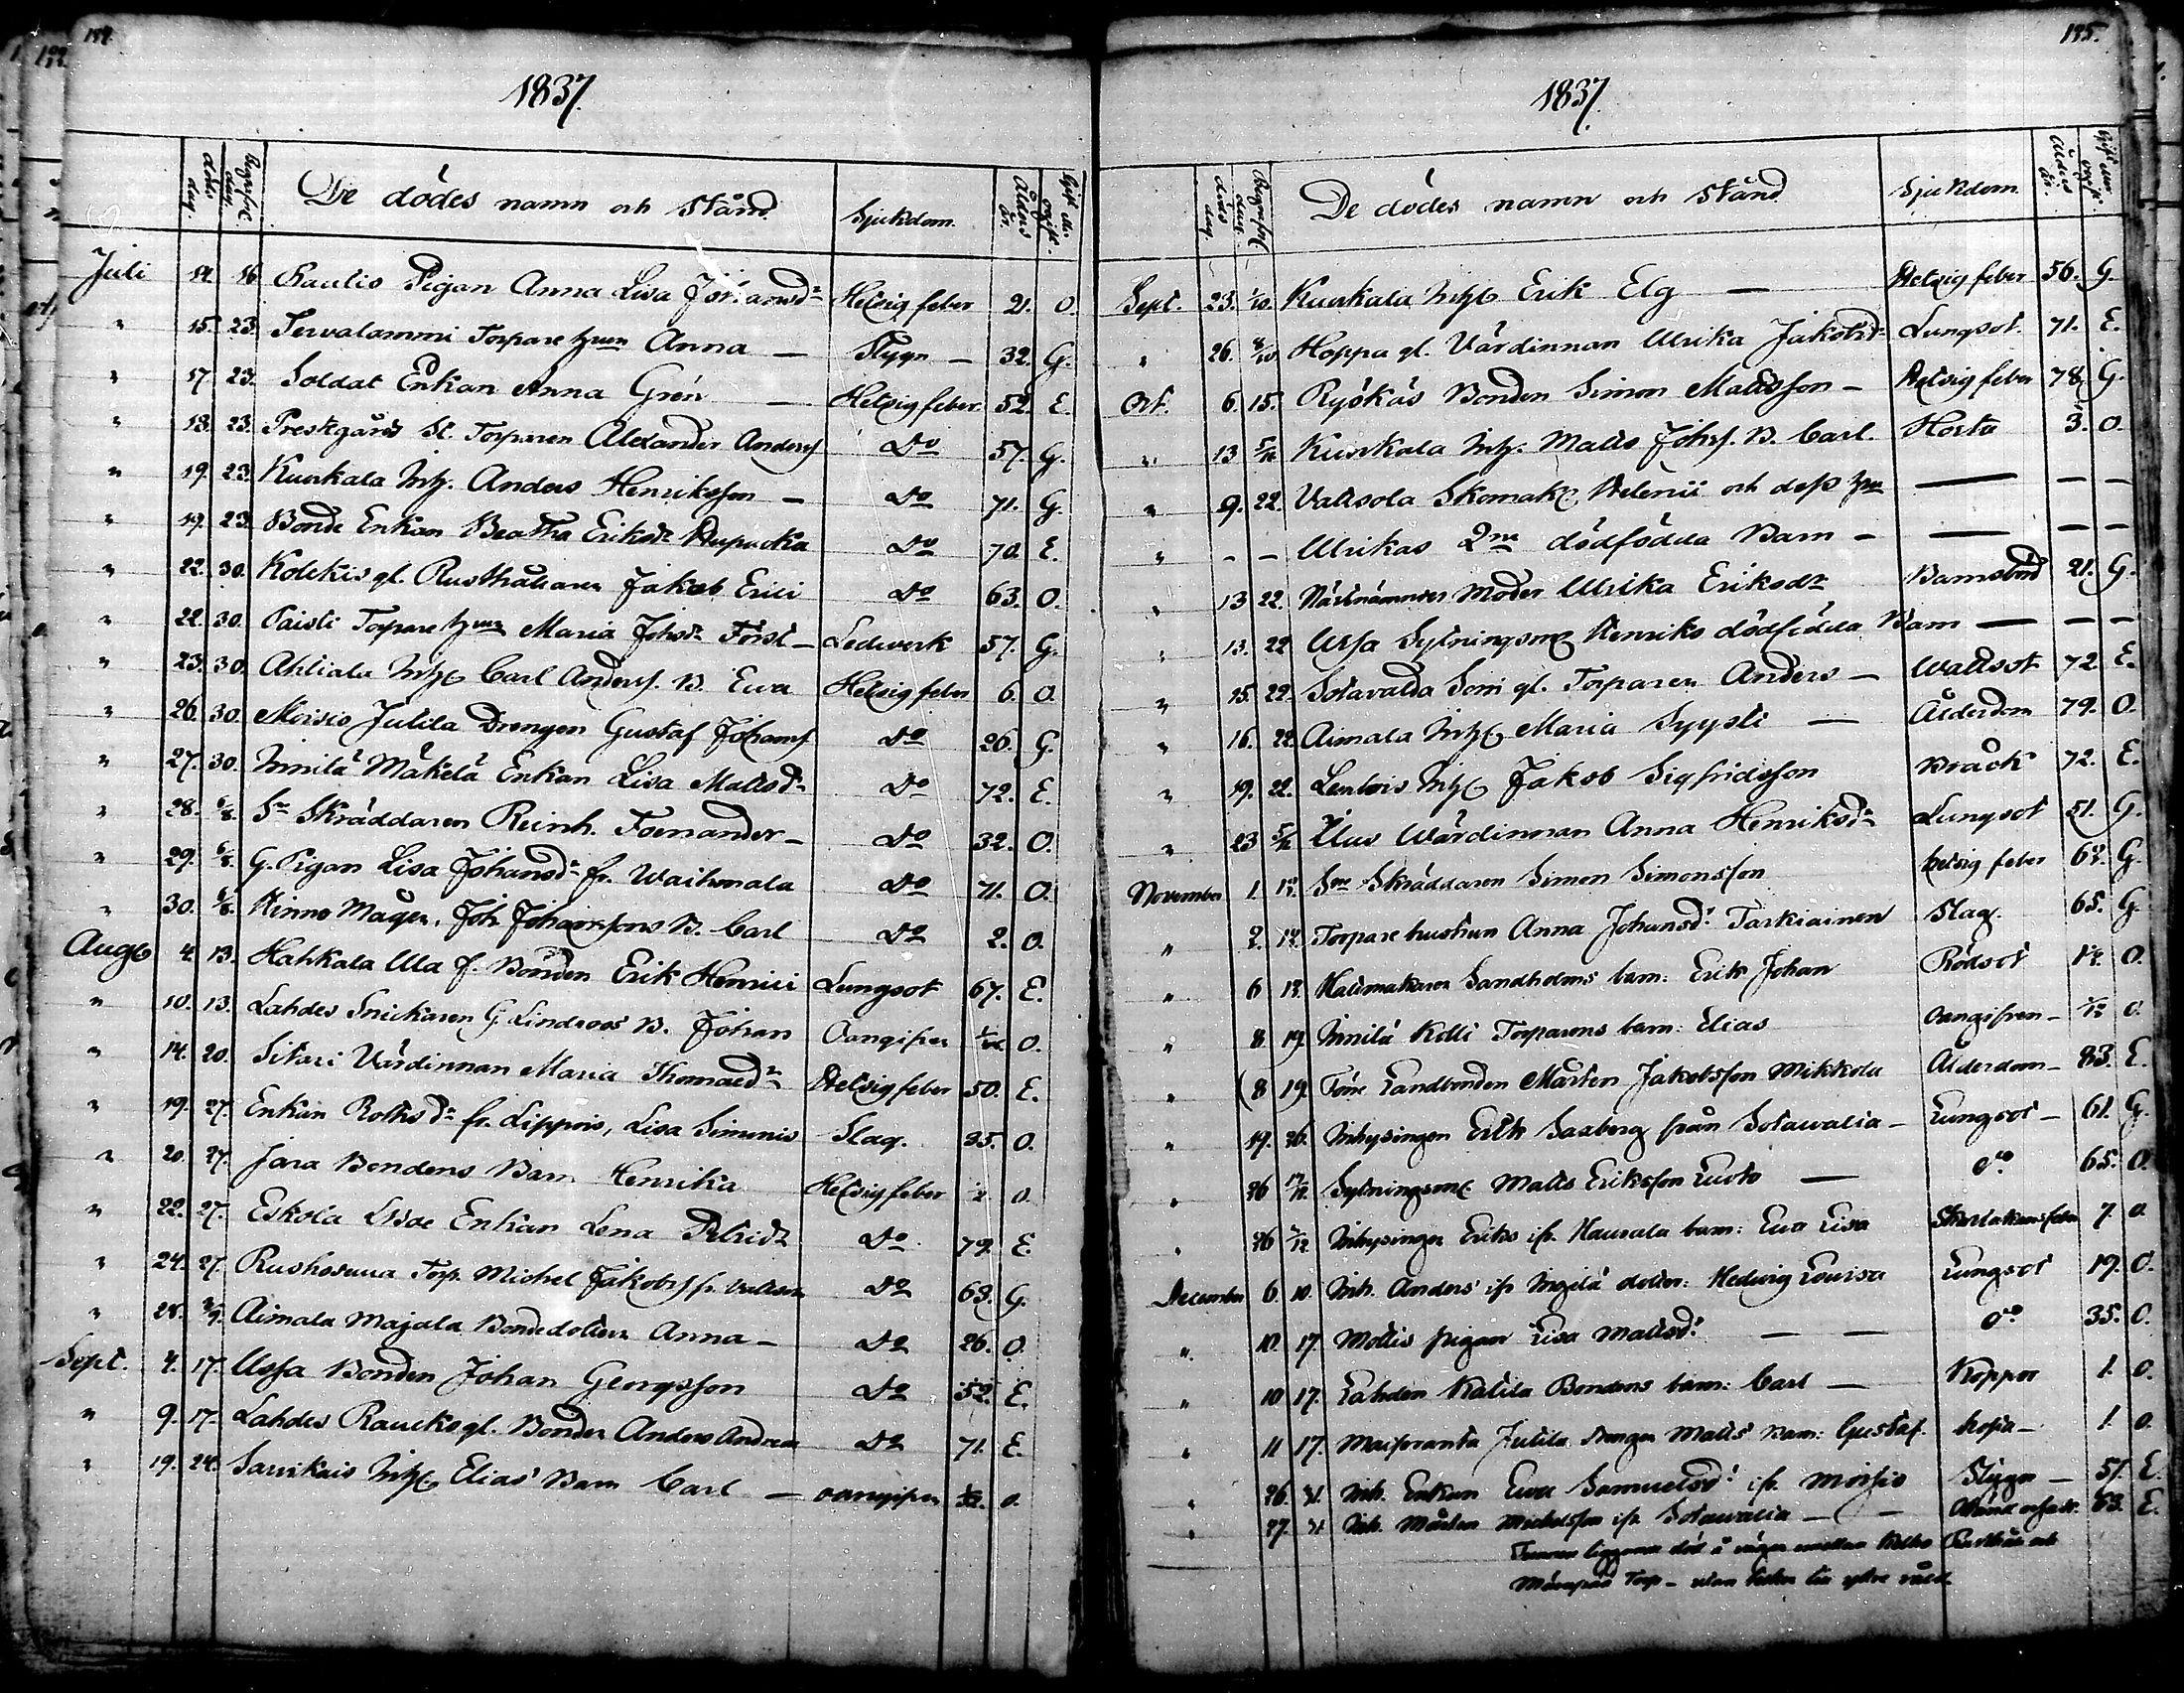 184.
1837.
Döds dag. Begrafn. dag. De dödes namn och Stånd. Sjukdom. Ålders år. Gift eller ogift.
Juli 14. 16 Rautio Pigan Anna Lisa Johansdr Hetsig feber 21. O.
" 15. 23. Tervalammi Torpare hun Anna — Stygn — 32. G.
" 17 23. Soldat Enkan Anna Grön — Hetsig feber 52. E.
" 18. 23. Prestgårds St. Torparen Alexander Andersf Do 57. G.
" 19. 23. Kuukala Inh. Anders Henriksson — Do 71. G.
" 19. 23. Bonde Enkan Beatha Eriksdr Do 70. E.
" 22. 30. Kolckis gl. Rusthållaren Jakob Erici Do 63. O.
" 22. 30. Paisti Torpare hun Maria Johsdr Först — Ledwerk 57. G.
" 23. 30. Ahliala Inh. Carl Andersf. B. Ewa Hetsig feber 6. O.
" 26. 30. Moisio Jutila Drengen Gustaf Johansf Do 26. G.
" 27. 30. Innilä Mäkelä Enkan Lisa Mattsdr Do 72. E.
" 28. 6/8. Sn Skräddaren Reinh. Fornander — Do 32. O.
" 29. 6/8. G. Pigan Lisa Johansdr fr. Waihmala Do 71. O.
" 30. 6/8. Kinno Mågen, Joh. Johanssons B. Carl Do 2. O.
Aug. 4. 13. Hahkala Ula f. Bonden Erik Henrici Lungsot 67. E.
" 10. 13. Lahdes Snickaren G. Lindroos B. Johan Oangifven O.
" 14. 20. Sitari Värdinnan Maria Thomaedr Hetsig feber 50. E.
" 19. 27. Enkan Rothsdr fr. Lippois, Lisa Simonis Slag. 35. O.
" 20. 27. Jara Bondens Barn Henrika Hetsig feber O.
" 22. 27. Eskola Enkan Lena Petridr Do 79. E.
" 24. 27. Ruskosuua Torp. Michel Jakobsf fr. Do 63. G.
" 28. 3/9. Aimala Majala Bondedottern Anna — Do 26. O.
Sept. 4. 17. Ussa Bonden Johan Georgsson Do 52. E.
" 9. 17. Lahdes Raucko gl. Bonden Anders Andreæ Do 71. E.
" 19. 24. Sarrikais Inh. Elias' Barn Carl — oangifven O.
185.
1837.
Döds dag. Begrafn. dag. De dödes namn och Stånd Sjukdom. Ålders år. Gift eller ogift.
Sept. 23. 1/10. Kuukala Inh. Erik Elg — Hetsig feber 56. G.
" 26. 8/10. Hoppa gl. Värdinnan Ulrika Jakobsdr Lungsot. 71. E.
Oct. 6. 15. Ryökäs Bonden Simon Mattsson — Hetsig feber 78. G.
" 13 5/11 Kuukala Inh. Matts Johsf. B. Carl. Hosta 3. O.
" 9. 22. Vatisola Skomak. Helenii och dess hu — — —
" - - Ulrikas 2ne dödfödda Barn — — — —
" 13 22. Näst nämnde Moder Ulrika Eriksdr Barnsbörd 21. G.
" 13. 22 Ussa Sytningsm. Henriks dödfödda Barn — — —
" 15. 22. Sotavalda Soni gl. Torparen Anders — Wattsot 72. E.
" 16. 22. Aimala Inh. Maria Syysti — Ålderdom 79. O.
" 19. 22. Lentois Inh. Jakob Sigfridsson Bråck 72. E.
" 23 5/11 Uus Wärdinnan Anna Henriksdr Lungsot 51. G.
November 1. 12. Sne Skräddaren Simon Simonsson hetsig feber 64. G.
" 2. 12. Torpare hustrun Anna Johansdr Tarkiainen Slag. 65. G.
" 6 12. Hattmakaren Sandholms barn: Erik Johan Rödsot 14. O.
" 8. 19. Innilä Kolli Torparens barn: Elias oangifven — O.
" 8 19. Landbonden Mårten Jakobsson Mikkola Ålderdom — 83. E.
" 19. 26. Inhysingen Erik Saxberg från Sotawalla — Lungsot — 61. G.
" 26 Sytningsm. Matts Eriksson Luoto — do 65. O.
" 26 Inhysingen Eriks ifr. Kausala barn: Eva Lisa Skarlakansfeber 7. O.
December 6. 10. Inh. Anders' ifr. dotter: Hedwig Lovisa Lungsot 19. O.
" 10. 17. Mottis pigan Lisa Mattsdr — — do 35. O.
" 10 17. Lahden Kätilä Bondens barn: Carl — Koppor 1. O.
" 11 17. Maisoranta Jutila Drengen Matts' barn: Gustaf. hosta — 1. O.
" 26. 31. Inh. Enkan Eva Samuelsdr ifr. Moisio Stygn — 51. E.
" 27. 31. Inh. Mårten Michelsson ifr. Sotawalla — — 63. E.
Funnen liggande död å vägen emellan Rusthåll och
Torp — utan tecken till yttre våld.